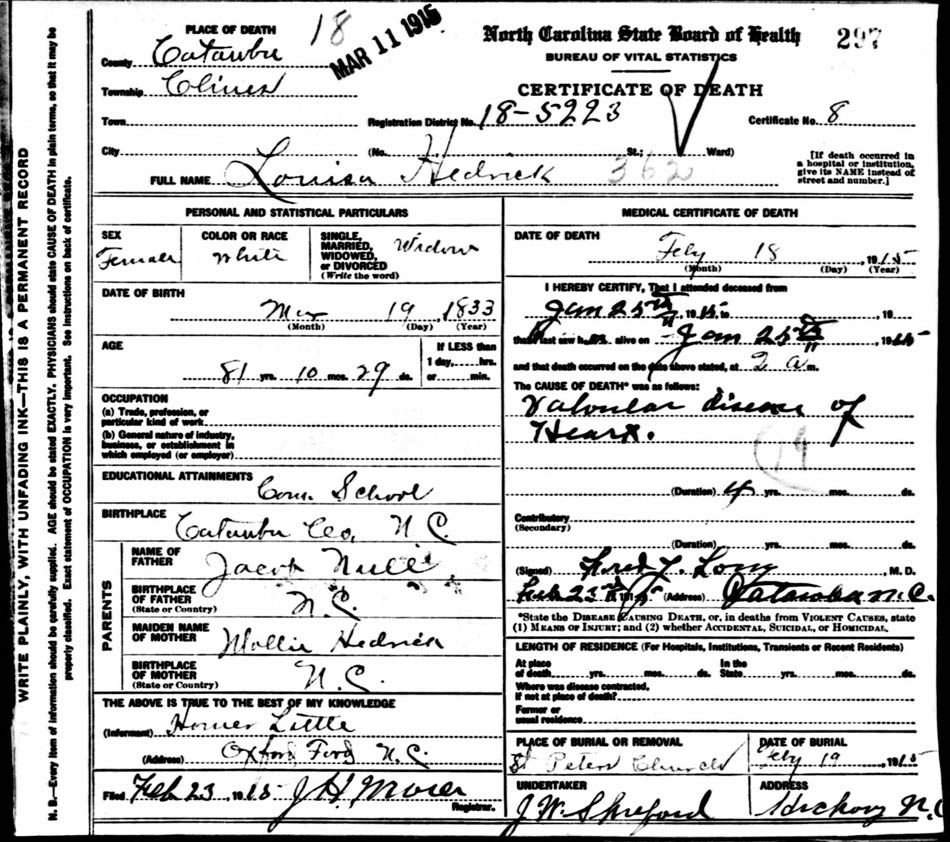 WRITE PLAINLY, WITH UNFADING INK—THIS IS A PERMANENT RECORD
N. B.—Every item of information should be carefully supplied. AGE should be stated EXACTLY. PHYSICIANS should state CAUSE OF DEATH in plain terms, so that it may be
properly classified. Exact statement of OCCUPATION is very important. See instructions on back of certificate.
PLACE OF DEATH
18
MAR 11 1915
North Carolina State Board of Health
297
BUREAU OF VITAL STATISTICS
CERTIFICATE OF DEATH
County Catawba
Township Clines
Town
Registration District No. 18-5223
Certificate No. 8
City
(No. St.; Ward)
362
[If death occurred in
a hospital or institution,
give its NAME instead of
street and number.]
FULL NAME Louisa Hedrick
PERSONAL AND STATISTICAL PARTICULARS
SEX
Female
COLOR OR RACE
White
SINGLE,
MARRIED,
WIDOWED,
or DIVORCED
(Write the word)
Widow
DATE OF BIRTH
Mar 19, 1833
(Month) (Day) (Year)
AGE
81 yrs. 10 mos. 29 ds.
If LESS than
1 day,....hrs.
or....min.
OCCUPATION
(a) Trade, profession, or
particular kind of work
(b) General nature of industry,
business, or establishment in
which employed (or employer)
EDUCATIONAL ATTAINMENTS
Com. School
BIRTHPLACE
Catawba Co, N.C.
PARENTS
NAME OF
FATHER
Jacob Null
BIRTHPLACE
OF FATHER
(State or Country)
N.C.
MAIDEN NAME
OF MOTHER
Mollie Hedrick
BIRTHPLACE
OF MOTHER
(State or Country)
N.C.
THE ABOVE IS TRUE TO THE BEST OF MY KNOWLEDGE
(Informant) Homer Little
(Address) Oxford Ford N.C.
Filed Feb 23, 1915 J H Moser
Registrar.
MEDICAL CERTIFICATE OF DEATH
DATE OF DEATH
Feby 18, 1915
(Month) (Day) (Year)
I HEREBY CERTIFY, That I attended deceased from
Jan 25th, 1915, to , 19
that I last saw h alive on Jan 25th, 1915
and that death occurred on the date above stated, at 2 a m.
The CAUSE OF DEATH* was as follows:
Valvular disease of
Heart.
(79)
(Duration) 4 yrs. mos. ds.
Contributory
(Secondary)
(Duration) yrs. mos. ds.
(Signed) Fred Y. Long M. D.
Feb 23rd 1915 (Address) Catawba N.C.
*State the DISEASE CAUSING DEATH, or, in deaths from VIOLENT CAUSES, state
(1) MEANS OF INJURY; and (2) whether ACCIDENTAL, SUICIDAL, or HOMICIDAL.
LENGTH OF RESIDENCE (For Hospitals, Institutions, Transients or Recent Residents)
At place
of death yrs. mos. ds.
In the
State yrs. mos. ds.
Where was disease contracted,
if not at place of death?
Former or
usual residence
PLACE OF BURIAL OR REMOVAL
St Peters Church
DATE OF BURIAL
Feby 19, 1915
UNDERTAKER
J W Shuford
ADDRESS
Hickory N.C